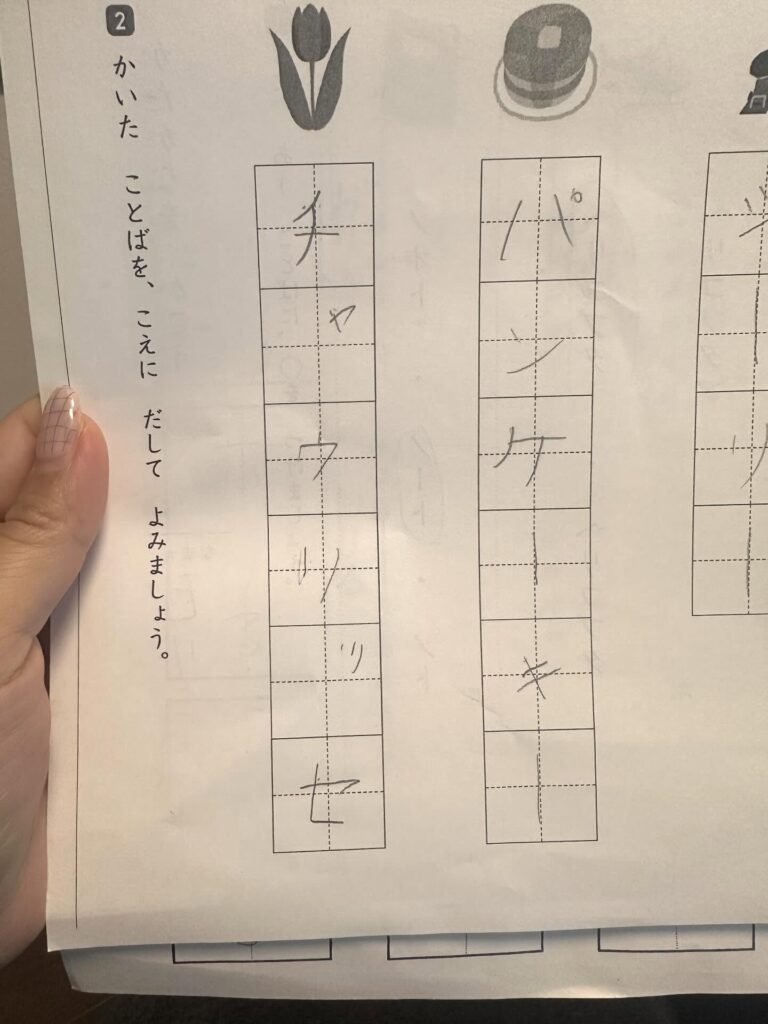 パンケーキー
チャウツッセ
2 かいた ことばを、こえに だして よみましょう。